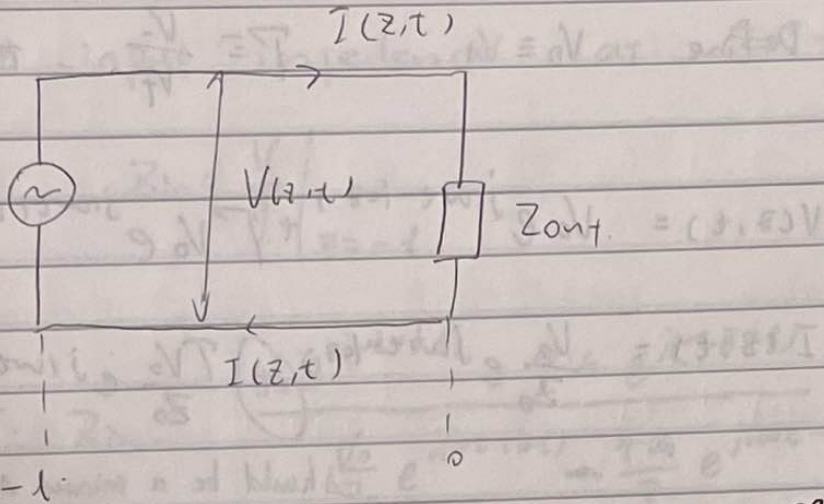 I(z,t)
V(z,t)
Zout.
I(z,t)
-l
0